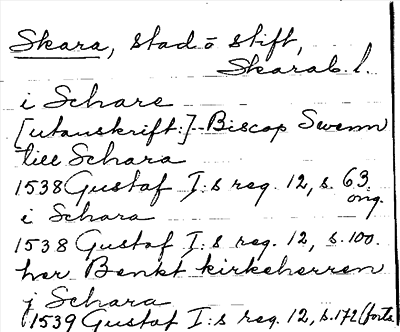 Skara, stad o stift,
Skarab. l.
i Schare
[utanskrift:] Biscop Swenn
till Schara
1538 Gustaf I:s reg. 12, s. 63.
ong.
i Schara
1538 Gustaf I:s reg. 12, s. 100.
her Benkt kirkeherren
j Schara
1539 Gustaf I:s reg. 12, s. 172 (forts.